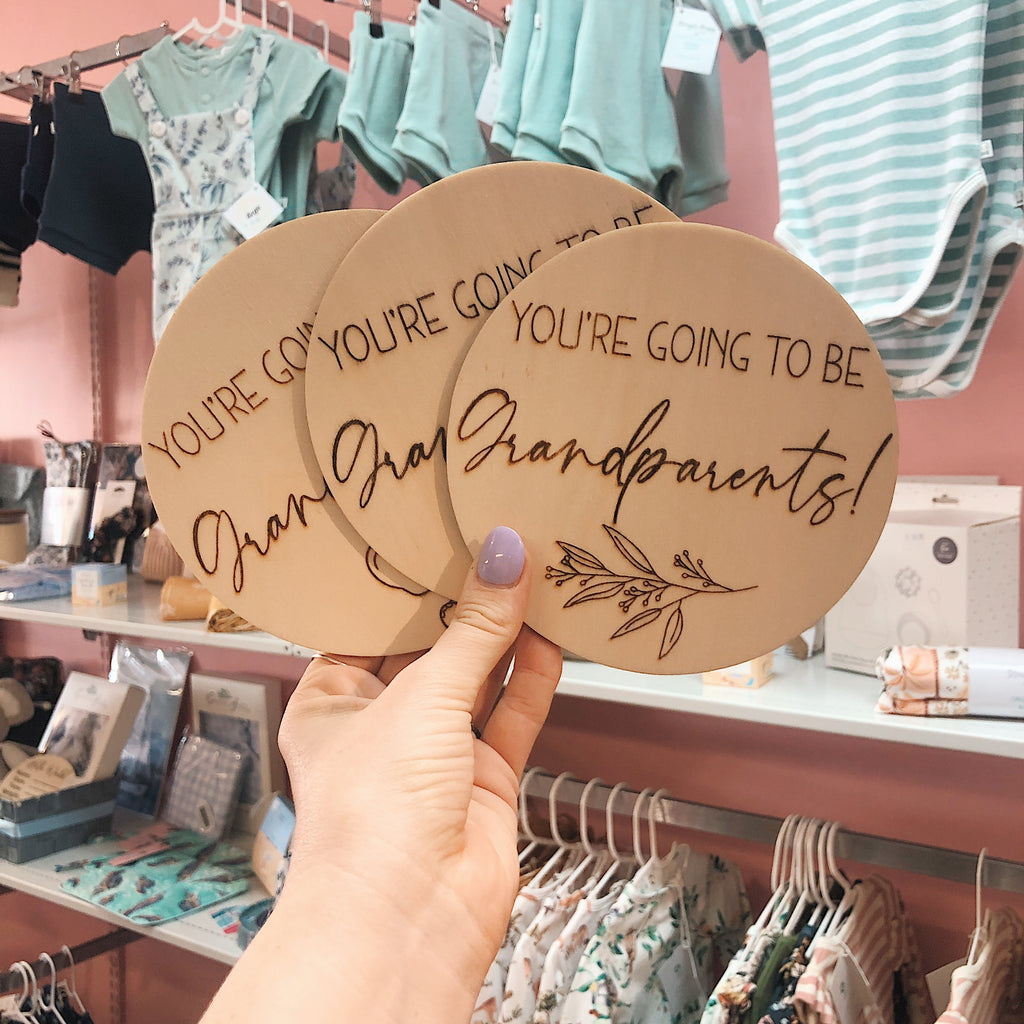 YOU'RE GOI
Gran
YOU'RE GOING TO BE
Gra
YOU'RE GOING TO BE
Grandparents!